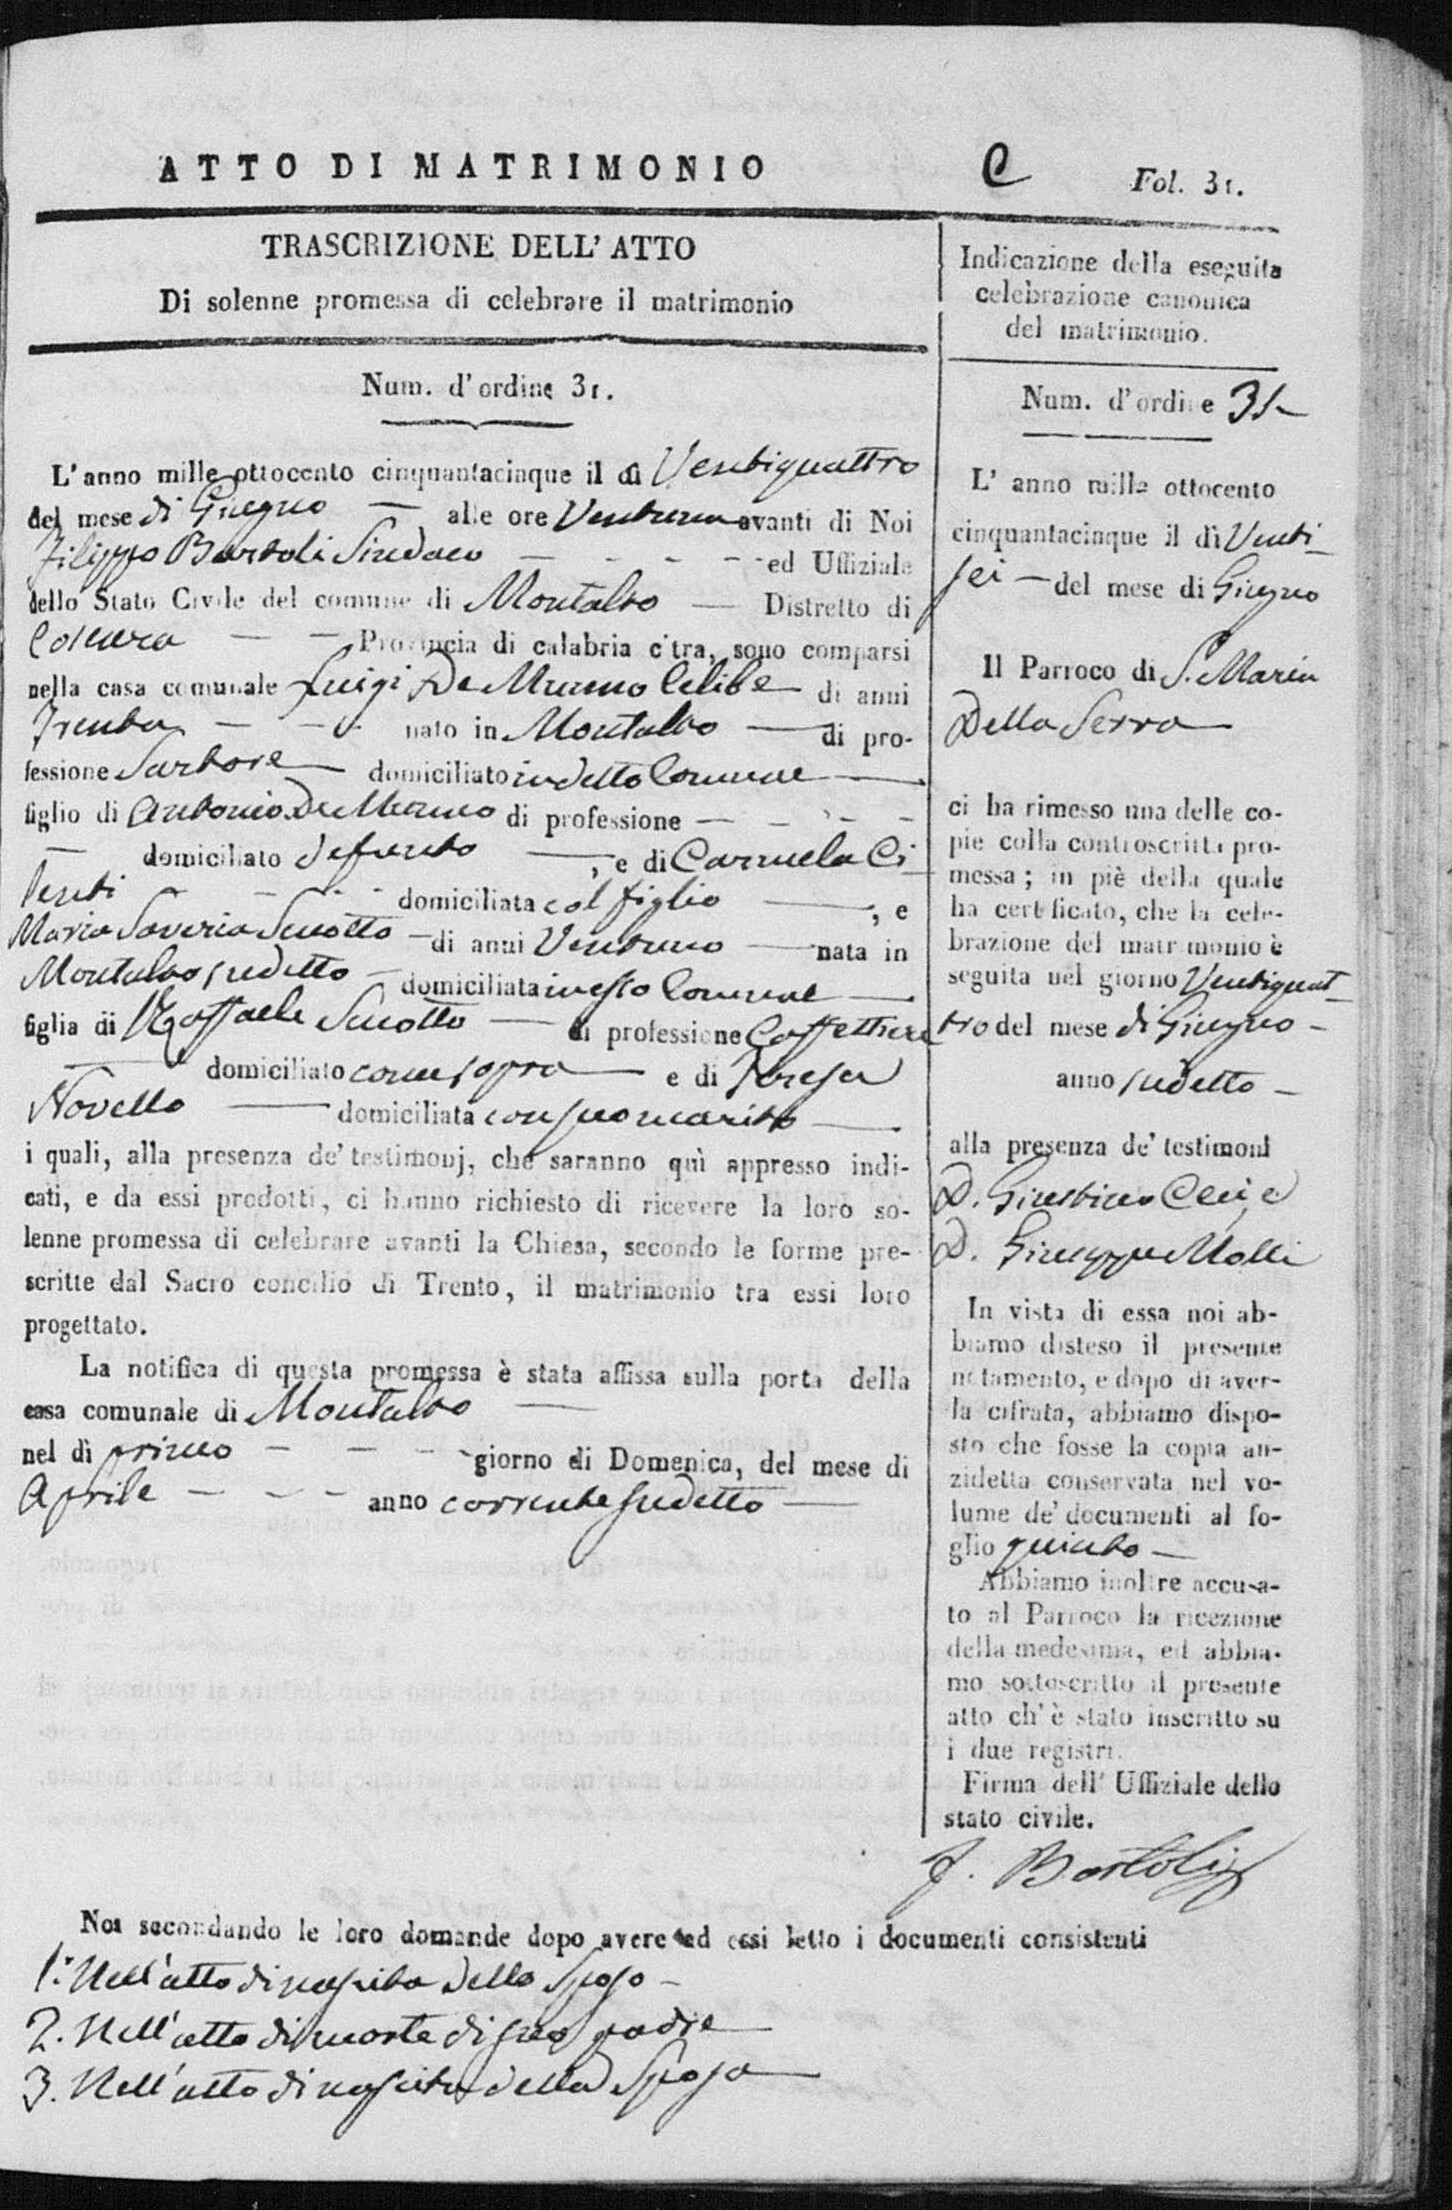 ATTO DI MATRIMONIO
C
Fol. 31.
TRASCRIZIONE DELL' ATTO
Di solenne promessa di celebrare il matrimonio
Num. d' ordine 31.
L' anno mille ottocento cinquantacinque il dì Ventiquattro
del mese di Giugno — alle ore Ventuna avanti di Noi
Filippo Bartoli Sindaco — ed Uffiziale
dello Stato Civile del comune di Montalto — Distretto di
Cosenza — Provincia di calabria citra, sono comparsi
nella casa comunale Luigi De Munno Celibe di anni
Trenta — nato in Montalto — di pro-
fessione Sartore domiciliato in detto Comune —
figlio di Antonio De Munno di professione —
— domiciliato defunto —, e di Carmela Ci
lenti — domiciliata col figlio —, e
Maria Saveria Scuotto — di anni Ventuno — nata in
Montalto sudetto — domiciliata in esso Comune —
figlia di Raffaele Scuotto — di professione Caffettiere
— domiciliato come sopra — e di Teresa
Novello — domiciliata con suo marito —
i quali, alla presenza de' testimonj, che saranno quì appresso indi-
cati, e da essi prodotti, ci hanno richiesto di ricevere la loro so-
lenne promessa di celebrare avanti la Chiesa, secondo le forme pre-
scritte dal Sacro concilio di Trento, il matrimonio tra essi loro
progettato.
La notifica di questa promessa è stata affissa sulla porta della
casa comunale di Montalto —
nel dì primo — giorno di Domenica, del mese di
Aprile — anno corrente sudetto —
Indicazione della eseguita
celebrazione canonica
del matrimonio.
Num. d' ordine 31
L' anno mille ottocento
cinquantacinque il dì Venti
sei — del mese di Giugno
Il Parroco di S. Maria
Della Serra
ci ha rimesso una delle co-
pie colla controscritta pro-
messa; in piè della quale
ha certificato, che la cele-
brazione del matrimonio è
seguita nel giorno Ventiquat
tro del mese di Giugno —
anno sudetto —
alla presenza de' testimoni
D. Giustino e
D. Giuseppe Molli
In vista di essa noi ab-
biamo disteso il presente
notamento, e dopo di aver-
la cifrata, abbiamo dispo-
sto che fosse la copia an-
zidetta conservata nel vo-
lume de' documenti al fo-
glio quinto —
Abbiamo inoltre accusa-
to al Parroco la ricezione
della medesima, ed abbia-
mo sottoscritto il presente
atto ch' è stato inscritto su
i due registri.
Firma dell' Uffiziale dello
stato civile.
F. Bartoli
Noi secondando le loro domande dopo avere ad essi letto i documenti consistenti
1.° Nell'atto di nascita dello Sposo —
2. Nell'atto di morte di suo padre
3. Nell'atto di nascita della Sposa